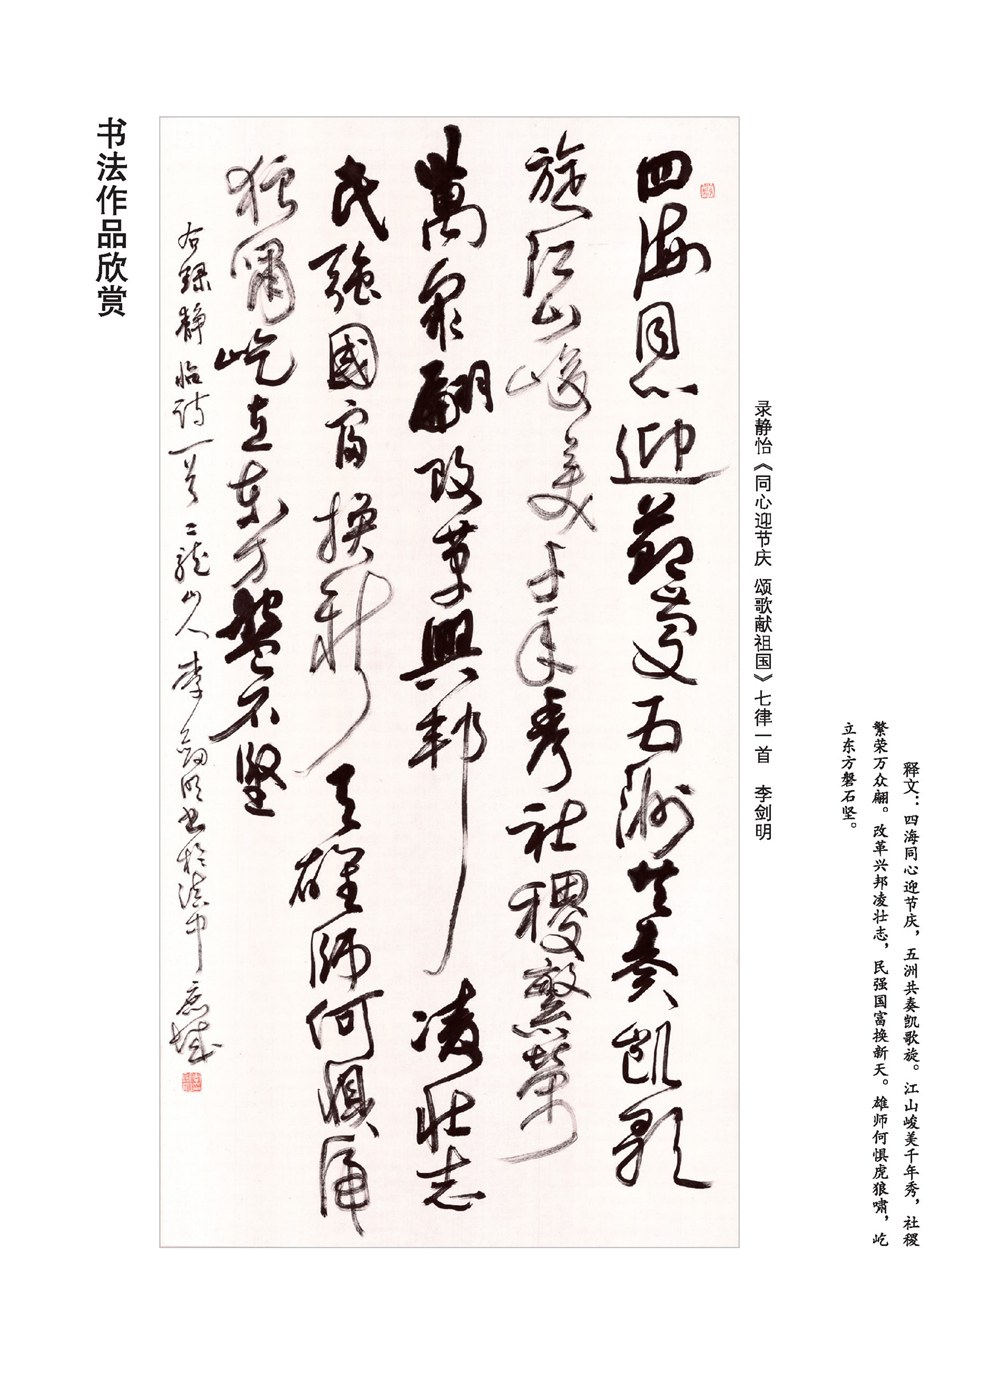 释文：四海同心迎节庆，五洲共奏凯歌旋。江山峻美千年秀，社稷
繁荣万众翩。改革兴邦凌壮志，民强国富换新天。雄师何惧虎狼啸，屹
立东方磐石坚。
录静怡《同心迎节庆 颂歌献祖国》七律一首 李剑明
四海同心迎節慶五洲共奏凱歌
旋江山峻美千年秀社稷繁榮
萬眾翩改革興邦凌壮志
民強國富換新天雄師何懼虎
狼嘯屹立東方磐石堅
右録静怡诗一首二龍山人李劍明书於滇中鹿城
书法作品欣赏